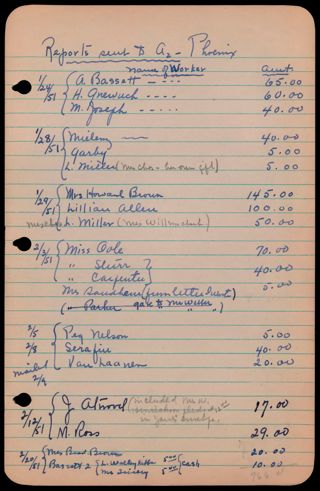 Reports sent to Az - Phoenix
Name of Worker Amt.
1/24/51 A. Bassett - - - - 65.00
H. Grewuch - - - - 60.00
M. Joseph - - - 40.00
1/28/51 Mielem —— 40.00
Garby 5.00
L. Miller (mrs chas - her own gift) 5.00
1/29/51 Mrs Howard Brown 145.00
Lillian Allen 100.00
L. Miller (Mrs 50.00
2/2/51 Miss Cole 70.00
" Starr
" Carpenter 40.00
Mrs (from Little Aunt) 5.00
(" Parker gave to Mr Weber " ")
2/5 Peg Nelson 5.00
2/8 Serafin 40.00
mailed 2/9 Van Laanen 20.00
2/12/51 J. Atwood (included Mr W. 17.00
in Jan's envelope.
M. Ross 29.00
2/20/51 Mrs Brad Brown 20.00
Bassett 2 5.00 cash 10.00
Mrs 5.00